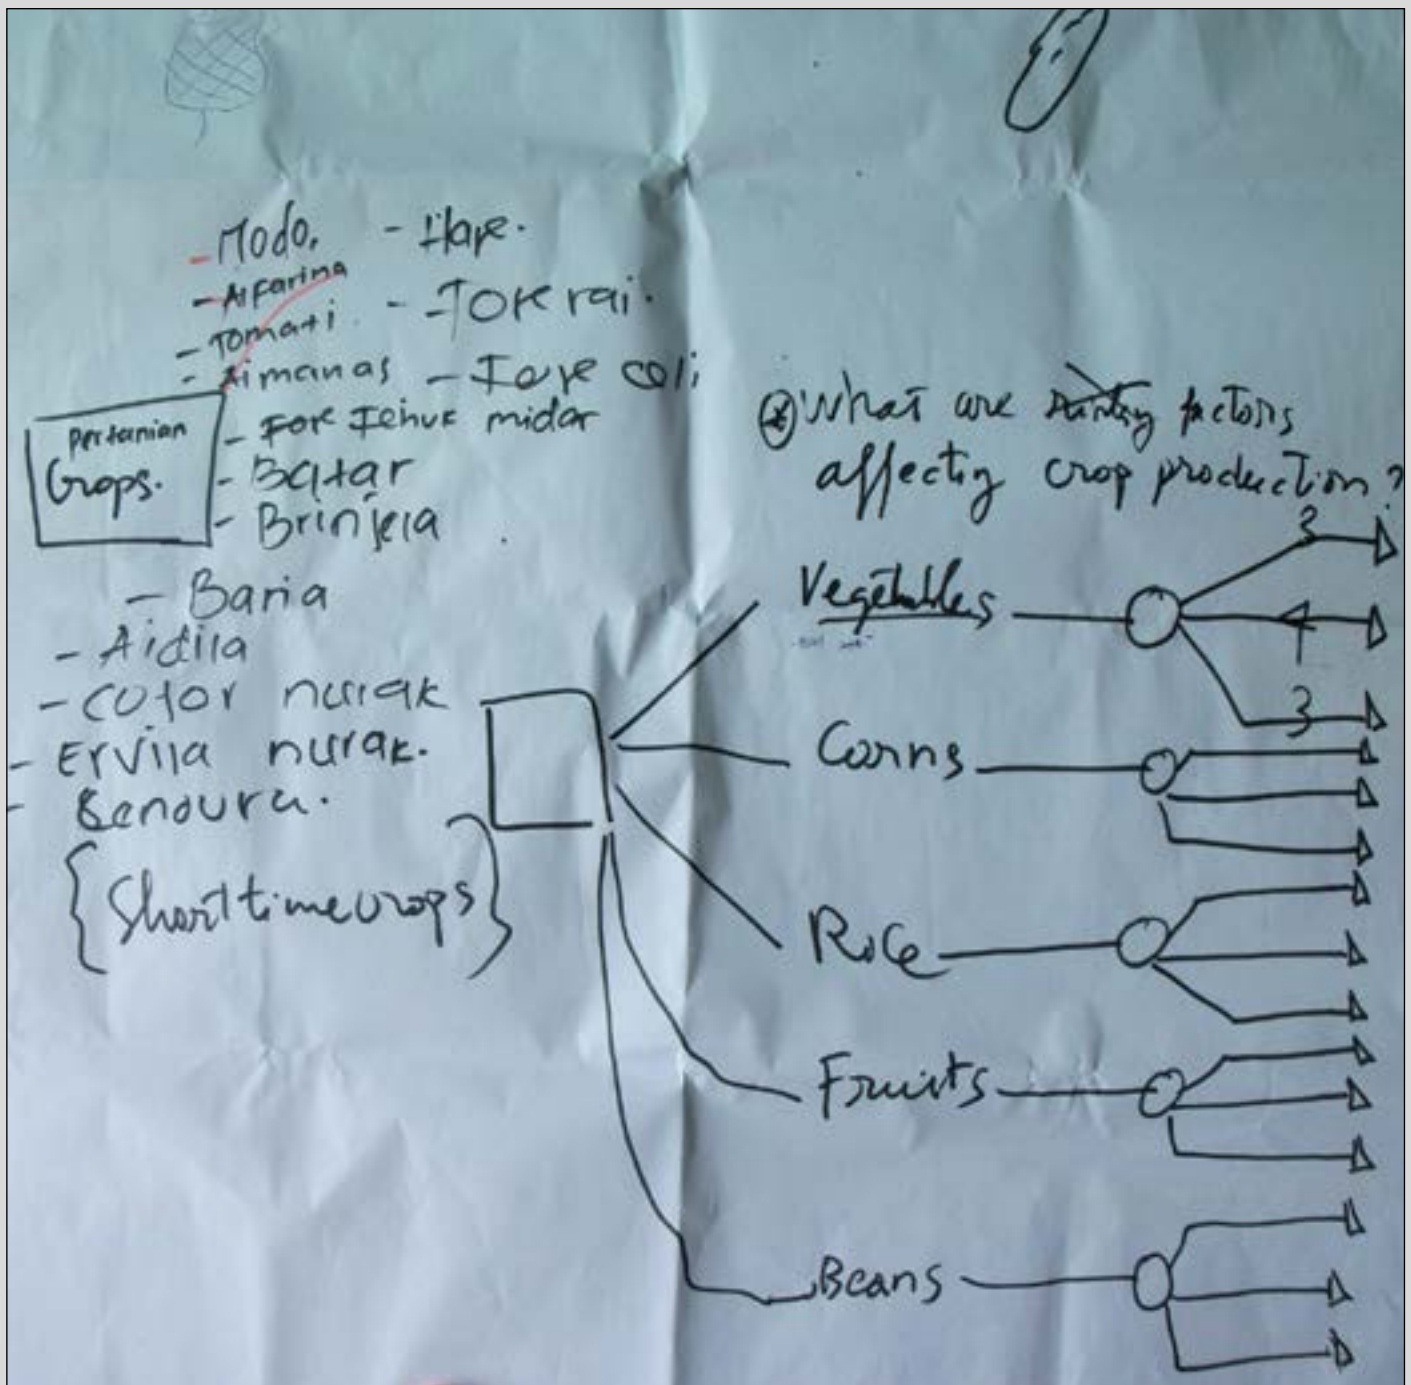 - Modo. - Hare.
- Aifarina
- Tomati - Tore rai.
- Aimanas - Fore coli
Pertanian - Fore Tehuk midar
Crops. - Batar
- Brinjela
- Baria
- Aidila
- Coto nurak
- Ervila nurak.
- Benoura.
{Short time crops}
What are factors
affecting crop production?
Vegetables
3
4
3
Corns
Rice
Fruits
Beans